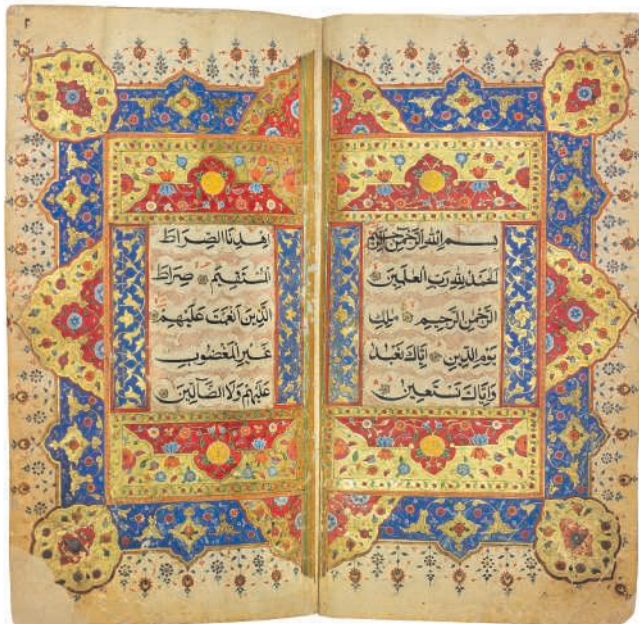 بِسْمِ اللَّهِ الرَّحْمَنِ الرَّحِيمِ
الْحَمْدُ لِلَّهِ رَبِّ الْعَلَمِينَ
الرَّحْمَنِ الرَّحِيمِ مَلِكِ
يَوْمِ الدِّينِ اِيَّاكَ نَعْبُدُ
وَاِيَّاكَ نَسْتَعِينُ
اِهْدِنَا الصِّرَاطَ
الْمُسْتَقِيمَ صِرَاطَ
الَّذِينَ اَنْعَمْتَ عَلَيْهِمْ
غَيْرِ الْمَغْضُوبِ
عَلَيْهِمْ وَلَا الضَّالِّينَ
٢